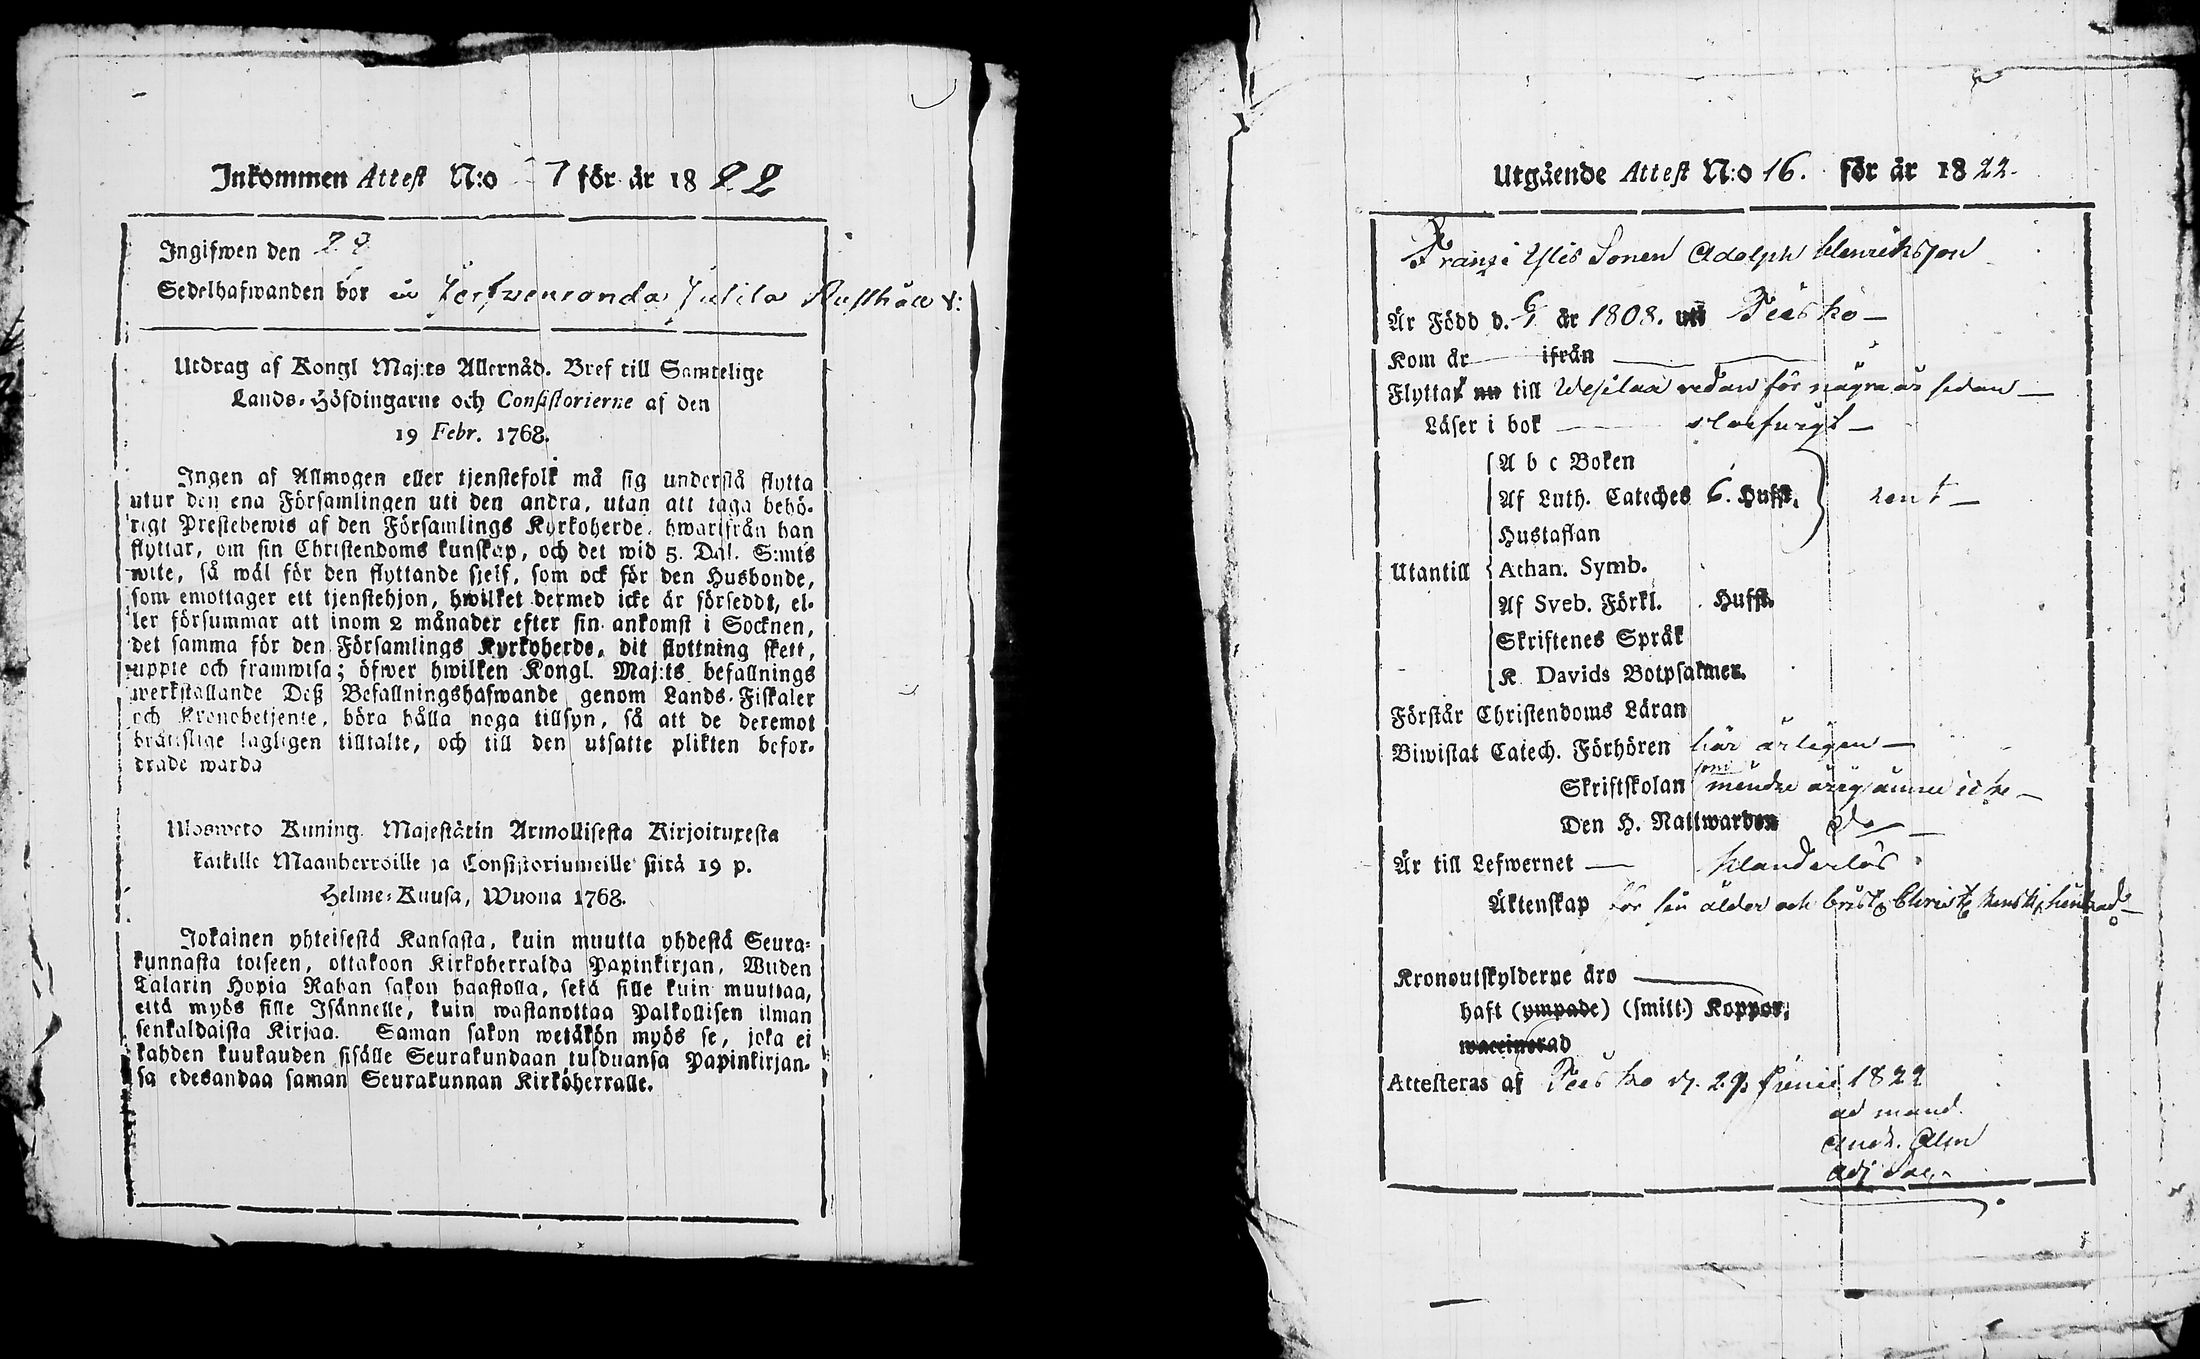 Inkommen Attest N:o 7 för år 1822
Ingifwen den 29
Sedelhafwanden bor Jutila
Utdrag af Kongl Maj:ts Allernåd. Bref till Samtelige
Lands-Höfdingarne och Consistorierne af den
19 Febr. 1768.
Ingen af Allmogen eller tjenstefolk må sig understå flytta
utur den ena Församlingen uti den andra, utan att taga behö-
rigt Prestebewis af den Församlings Kyrkoherde, hwarifrån han
flyttar, om sin Christendoms kunskap, och det wid 5. Dal. S:mts
wite, så wäl för den flyttande sjelf, som ock för den Husbonde,
som emottager ett tjenstehjon, hwilket dermed icke är förseddt, el-
ler försummar att inom 2 månader efter sin ankomst i Socknen,
det samma för den Församlings Kyrkoherde, dit flyttning skett,
uppte och framwisa; öfwer hwilken Kongl. Maj:ts befallnings
werkställande Deß Befallningshafwande genom Lands-Fiskaler
och Kronobetjente, böra hålla noga tillsyn, så att de deremot
bråttslige lagligen tilltalte, och till den utsatte plikten befor-
drade warda
Ulosweto Kuning. Majestätin Armollisesta Kirjoituxesta
kaikille Maanherroille ja Consistoriumeille siitä 19 p.
Helme-Kuusa, Wuona 1768.
Jokainen yhteisestä Kansasta, kuin muutta yhdestä Seura-
kunnasta toiseen, ottakoon Kirkoherralda Papinkirjan, Wiiden
Talarin Hopia Rahan sakon haastolla, sekä sille kuin muuttaa,
että myös sille Isännelle, kuin wastanottaa Palkollisen ilman
senkaldaista Kirjaa. Saman sakon wetäkön myös se, joka ei
kahden kuukauden sisälle Seurakundaan tulduansa Papinkirjan-
sa edesandaa saman Seurakunnan Kirkoherralle.
Utgående Attest N:o 16. för år 1822.
Sonen Adolph Henriksson
Är Född d. 9/6 år 1808. uti
Kom år ifrån
Flyttat nu till Wesilax redan för några år sedan
Läser i bok
A b c Boken
Af Luth. Cateches 6. Hufst. rent
Hustaflan
Utantill Athan. Symb.
Af Sveb. Förkl. Hufst.
Skriftenes Språk
K Davids Botpsalmer.
Förstår Christendoms Läran
Biwistat Catech. Förhören här årligen
Skriftskolan som mindre årig ännu icke
Den H. Nattwarden do
Är till Lefwernet klanderlös
Äktenskap för sin ålder och brist
Kronoutskylderne äro
haft (ympade) (smitt.) Koppor,
waccinerad
Attesteras af d. 29. Junii 1822
ad mand.
And. Alm
Adj Sac.